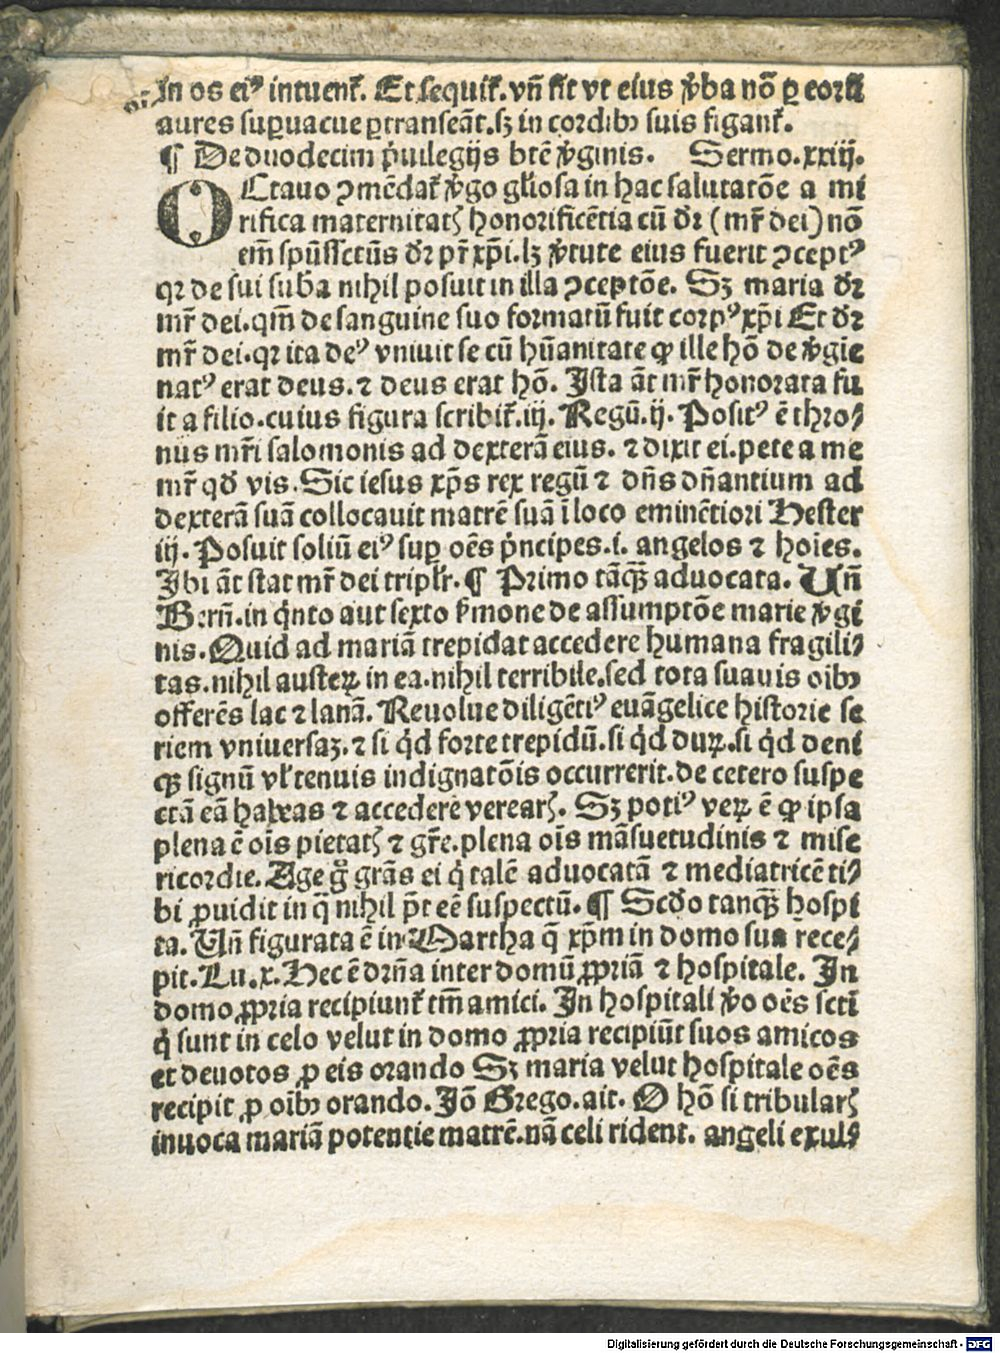 In os eiꝰ intuent̃. Et sequit̃. vñ fit vt eius v̓ba nõ ꝑ eorũ
aures suꝑuacue ꝑtranseãt. sꝫ in cordibꝰ suis figant̃.
¶ De duodecim p̓uilegijs btẽ v̓ginis. Sermo. xxiij.
OCtauo ꝯmẽdat̃ v̓go gl̓iosa in hac salutatõe a mi
rifica maternitatꝭ honorificẽtia cũ dr̃ (mr̃ dei) nõ
em̃ spũssctũs dr̃ pr̃ xp̃i. lꝫ v̓tute eius fuerit ꝯceptꝰ
qꝛ de sui sub̃a nihil posuit in illa ꝯceptõe. Sꝫ maria dr̃
mr̃ dei. qm̃ de sanguine suo formatũ fuit corpꝰ xp̃i Et dr̃
mr̃ dei. qꝛ ita deꝰ vniuit se cũ hũanitate ꝙ ille hõ de v̓gĩe
natꝰ erat deus. ⁊ deus erat hõ. Ista ãt mr̃ honorata fu
it a filio. cuius figura scribit̃. iij. Regũ. ij. Positꝰ ẽ thro⸗
nus mr̃i salomonis ad dexterã eius. ⁊ dixit ei. pete a me
mr̃ qd̓ vis. Sic iesus xp̃s rex regũ ⁊ dñs dñantium ad
dexterã suã collocauit matrẽ suã ĩ loco eminẽtiori Hester
iij. Posuit soliũ eiꝰ suꝑ oẽs p̓ncipes. i. angelos ⁊ hoĩes.
Ibi ãt stat mr̃ dei tripl̓r. ¶ Primo tãqꝫ aduocata. Vñ
Berñ. in q̓nto aut sexto s̓mone de assumptõe marie v̓gi
nis. Quid ad mariã trepidat accedere humana fragili⸗
tas. nihil austeꝝ in ea. nihil terribile. sed tota suauis oĩbꝰ
offerẽs lac ⁊ lanã. Reuolue diligẽtiꝰ euãgelice historie se
riem vniuersaꝫ. ⁊ si q̓d forte trepidũ. si q̓d duꝝ. si q̓d deni
qꝫ signũ vl̓ tenuis indignatõis occurrerit. de cetero suspe
ctã eã habeas ⁊ accedere verearꝭ. Sꝫ potiꝰ veꝝ ẽ ꝙ ipsa
plena ẽ oĩs pietatꝭ ⁊ gr̃e. plena oĩs mãsuetudinis ⁊ mise
ricordie. Age gͦ grãs ei q̓ talẽ aduocatã ⁊ mediatricẽ ti⸗
bi ꝓuidit in q̃ nihil p̃t eẽ suspectũ. ¶ Scd̓o tanqꝫ hospi
ta. Vñ figurata ẽ in Martha q̃ xp̃m in domo sua rece⸗
pit. Lu. x. Hec ẽ dr̃ña inter domũ ꝓpriã ⁊ hospitale. In
domo ꝓpria recipiunt̃ tm̃ amici. In hospitali v̓o oẽs scti
q̓ sunt in celo velut in domo ꝓpria recipiũt suos amicos
et deuotos ꝓ eis orando Sꝫ maria velut hospitale oẽs
recipit ꝓ oĩbꝰ orando. Iõ Grego. ait. O hõ si tribularꝭ
inuoca mariã potentie matrẽ. nã celi rident. angeli exul⸗
Digitalisierung gefördert durch die Deutsche Forschungsgemeinschaft - DFG